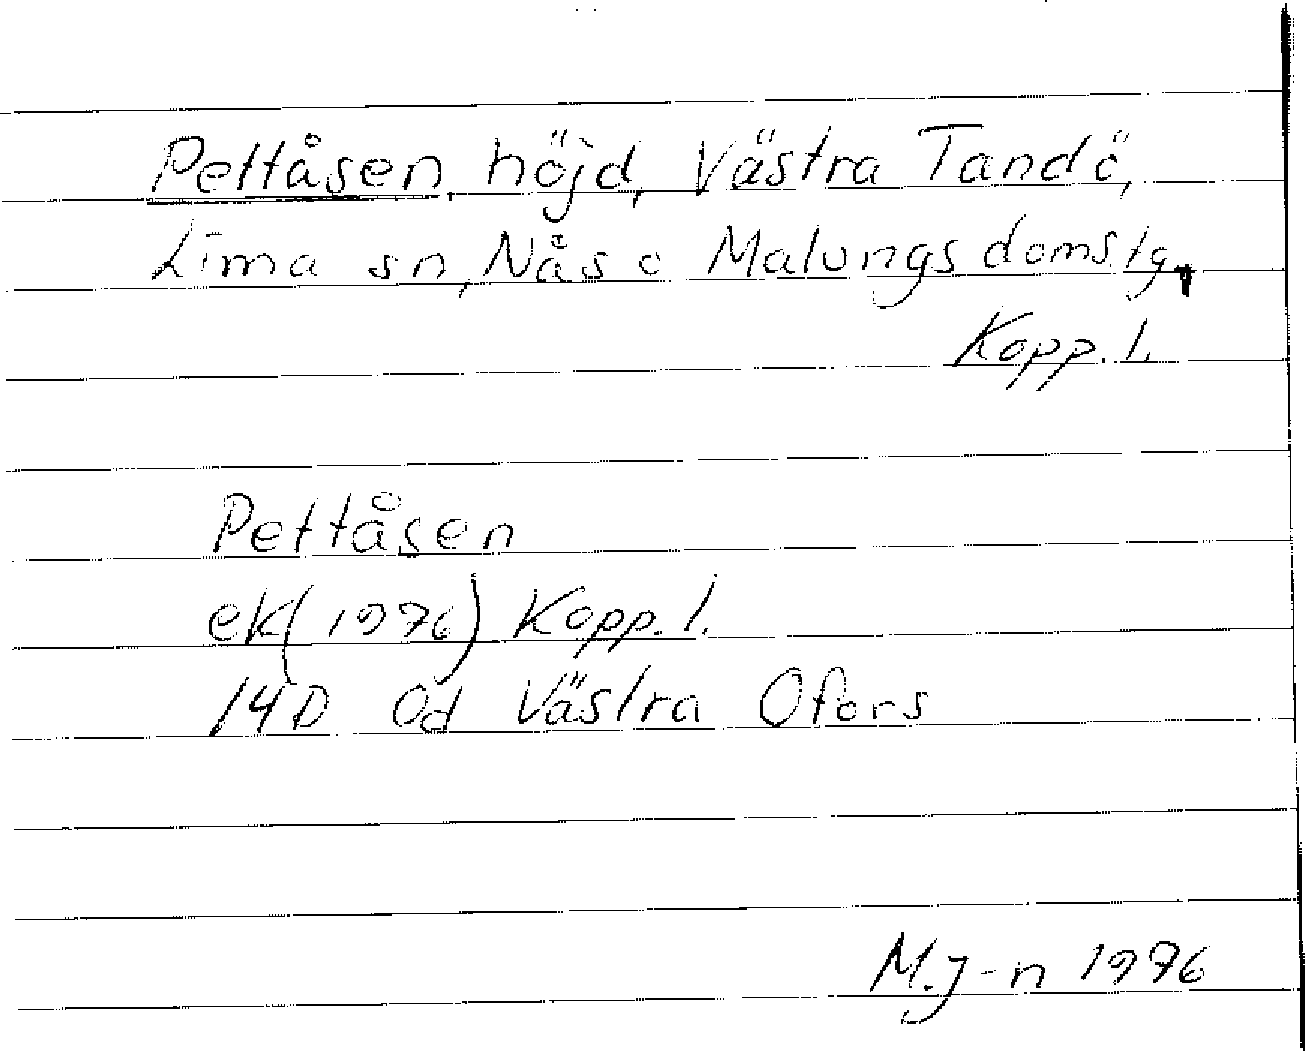 Pettåsen, höjd, Västra Tandö,
Lima sn, Nås o Malungs domstg,
Kopp. l.
Pettåsen
ek (1976) Kopp. l.
14D 0d Västra Ofors
M.J-n 1976